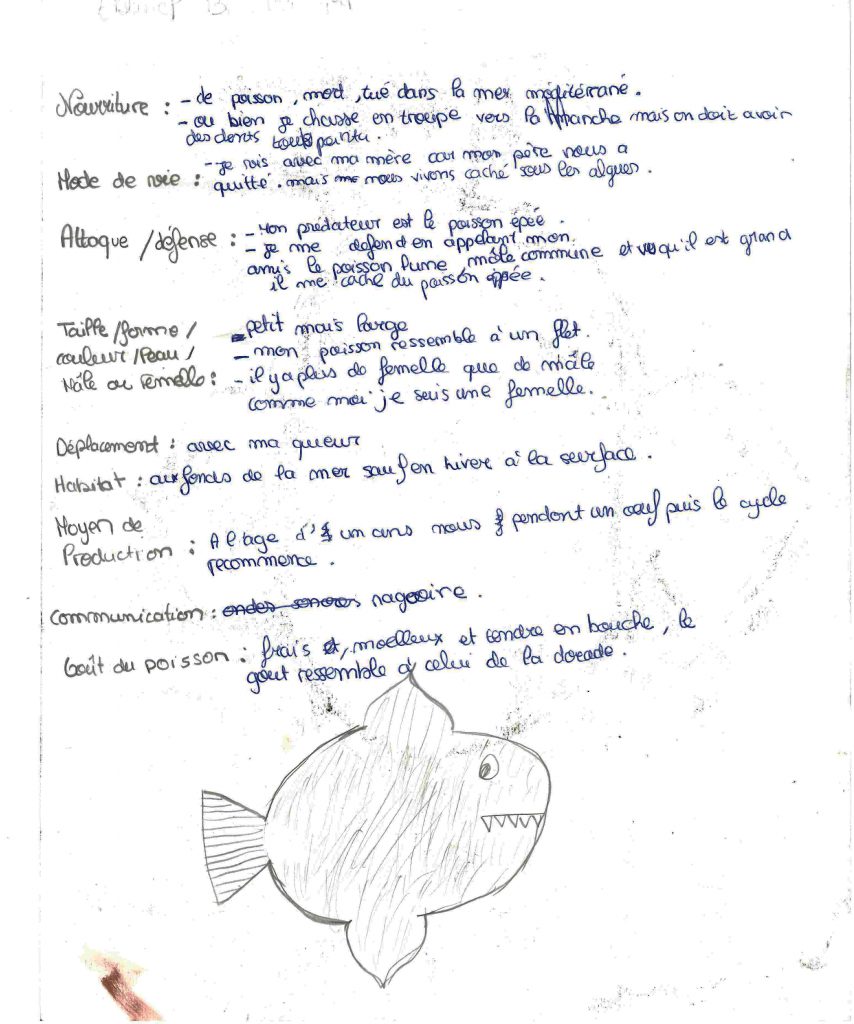 Nourriture : - de poisson, mort, tué dans la mer méditérrané.
- ou bien je chasse en troupe vers la Manche mais on doit avoir
des dents tout pointu.
Mode de vie : - je vis avec ma mère car mon père nous a
quitté. mais nous vivons caché sous les algues.
Attaque /défense : - Mon prédateur est le poisson épée.
- Je me défend en appelant mon
amis le poisson lune môle commune et vu qu'il est grand
il me cache du poisson épée.
Taille /forme / - petit mais large
couleur /Peau / - mon poisson ressemble à un flet.
Mâle ou Femelle : - il y a plus de femelle que de mâle
comme moi je suis une femelle.
Déplacement : avec ma queur
Habitat : aux fonds de la mer sauf en hiver à la surface.
Moyen de
Production : A l'age d' un ans nous pendont un oeuf puis le cycle
recommence.
Communication : ondes sonores nageoire.
Goût du poisson : frais et, moelleux et tendre en bouche, le
gout ressemble à celui de la dorade.